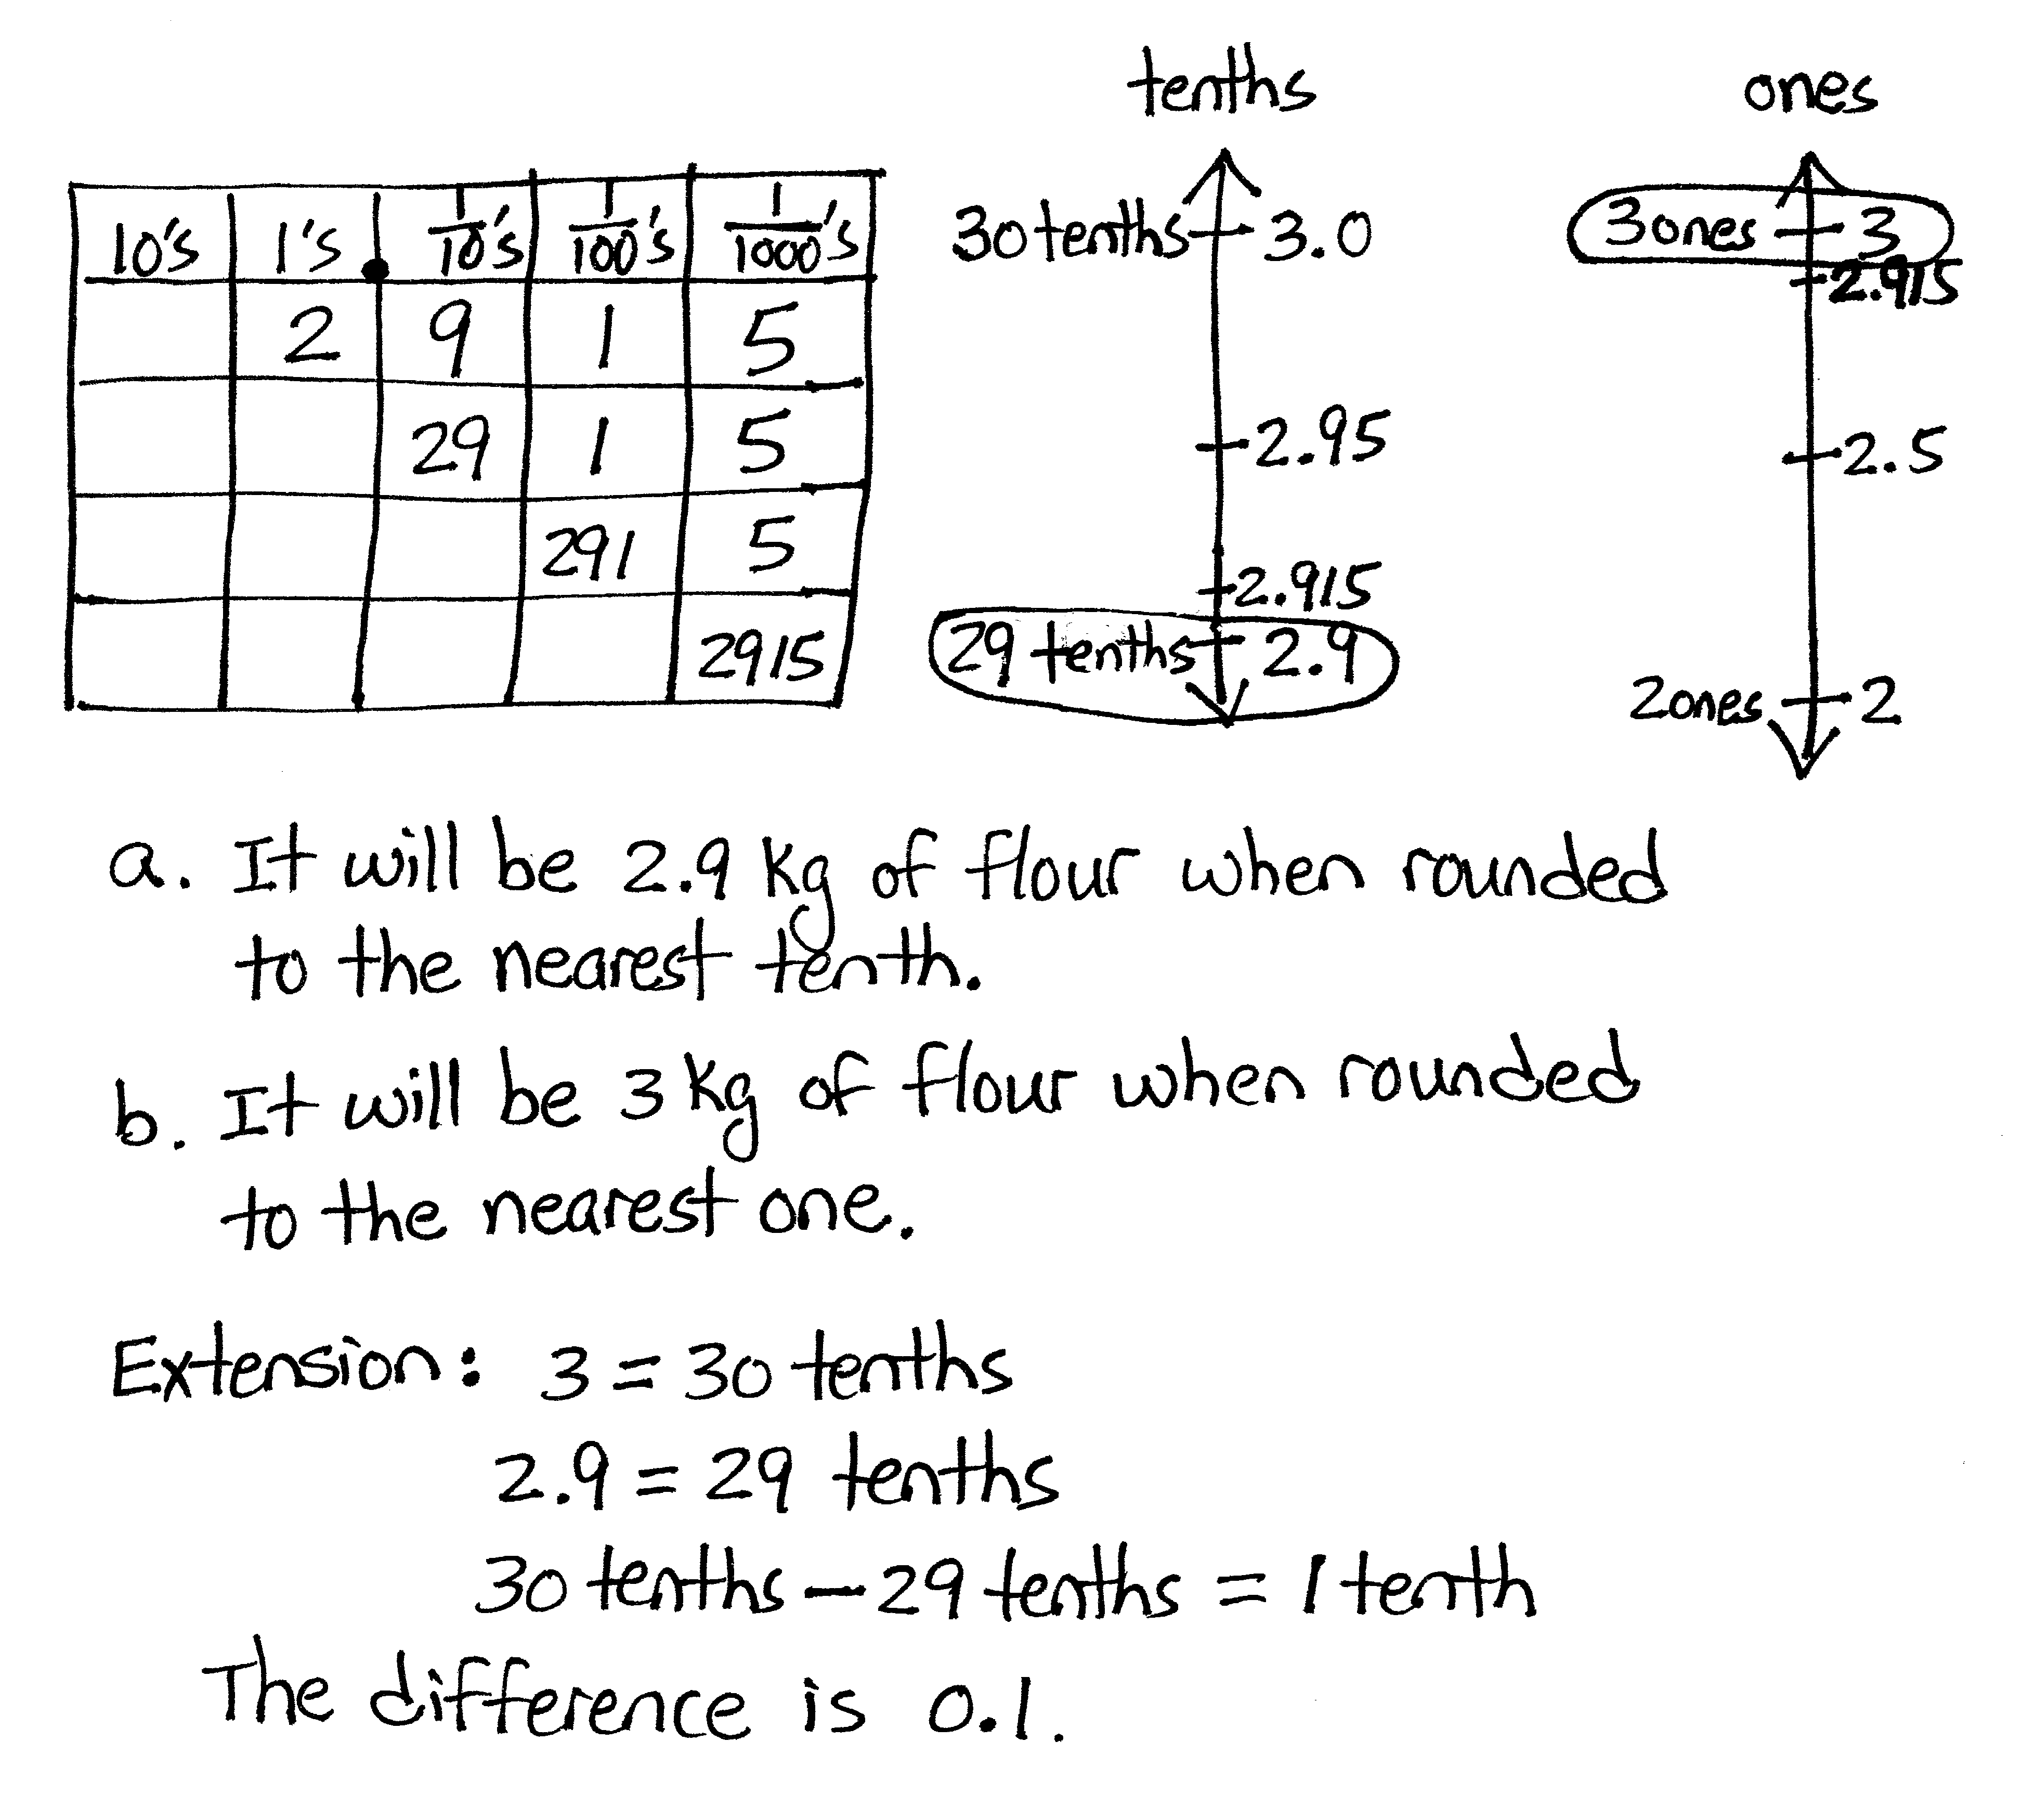 10's 1's . 1/10's 1/100's 1/1000's
2 9 1 5
29 1 5
291 5
2915
tenths
30 tenths 3.0
2.95
2.915
29 tenths 2.9
ones
3 ones 3
2.915
2.5
2 ones 2
a. It will be 2.9 kg of flour when rounded
to the nearest tenth.
b. It will be 3 kg of flour when rounded
to the nearest one.
Extension: 3 = 30 tenths
2.9 = 29 tenths
30 tenths – 29 tenths = 1 tenth
The difference is 0.1.